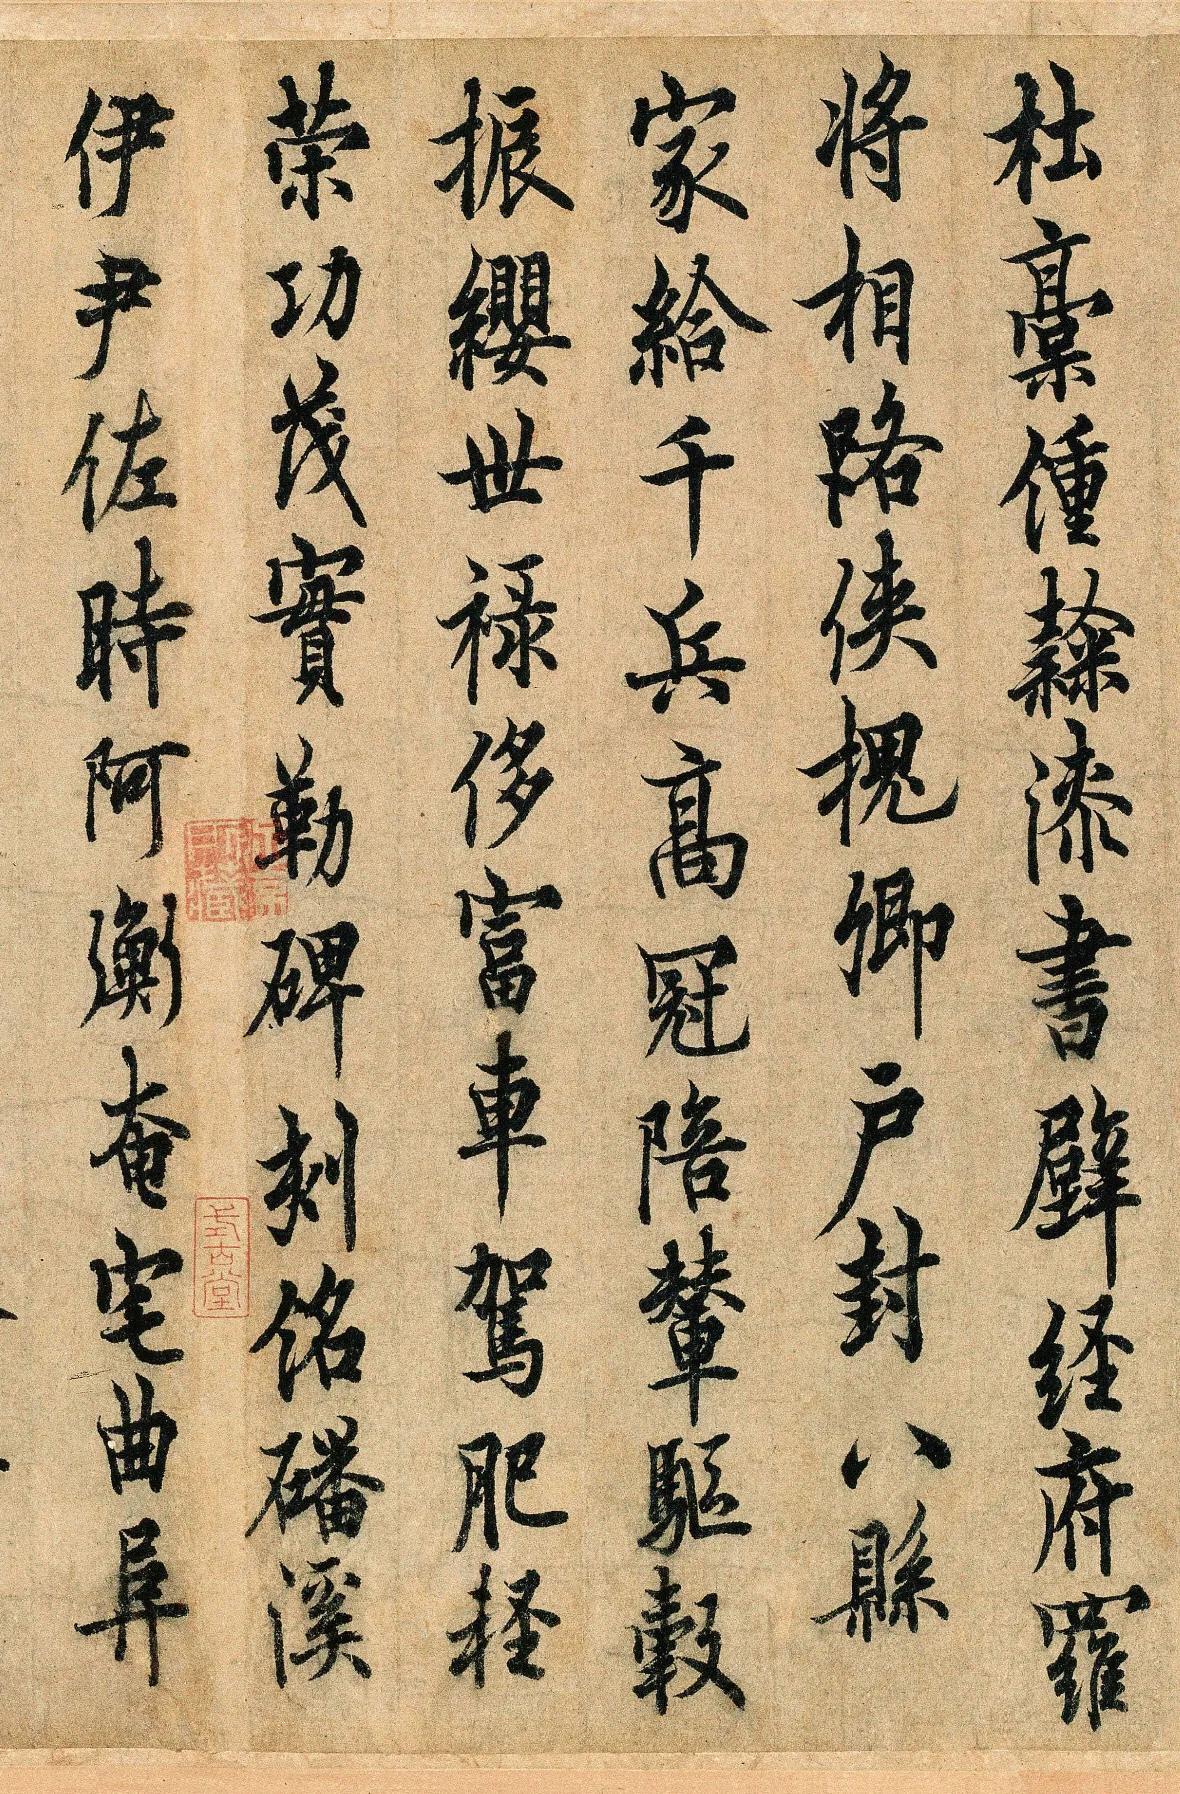 杜稾鍾隸漆書壁経府羅
将相路侠槐卿户封八縣
家給千兵髙冠陪輦驅轂
振纓世禄侈富車駕肥軽
荣功茂實勒碑刻銘磻溪
伊尹佐時阿衡奄宅曲阜
式古堂